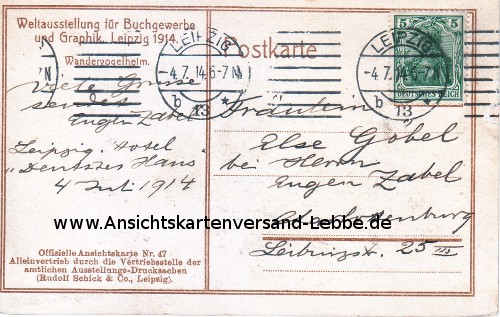 Weltausstellung für Buchgewerbe
und Graphik, Leipzig 1914.
Wandervogelheim.
Postkarte
LEIPZIG
-4.7.14.6-7N
b 13 *
LEIPZIG
-4.7.14.6-7N
b 13
5 5
DEUTSCHES REICH
Viele Grüsse
sendet
Eugen Zabel
Leipzig. Hotel
"Deutsches Haus
4 Juli 1914
Fräulein
Else Gobel
bei Herrn
Eugen Zabel
Charlottenburg
Leibnizstr. 25 III
www.Ansichtskartenversand-Lebbe.de
Offizielle Ansichtskarte Nr. 47
Alleinvertrieb durch die Vertriebsstelle der
amtlichen Ausstellungs-Drucksachen
(Rudolf Schick & Co., Leipzig).